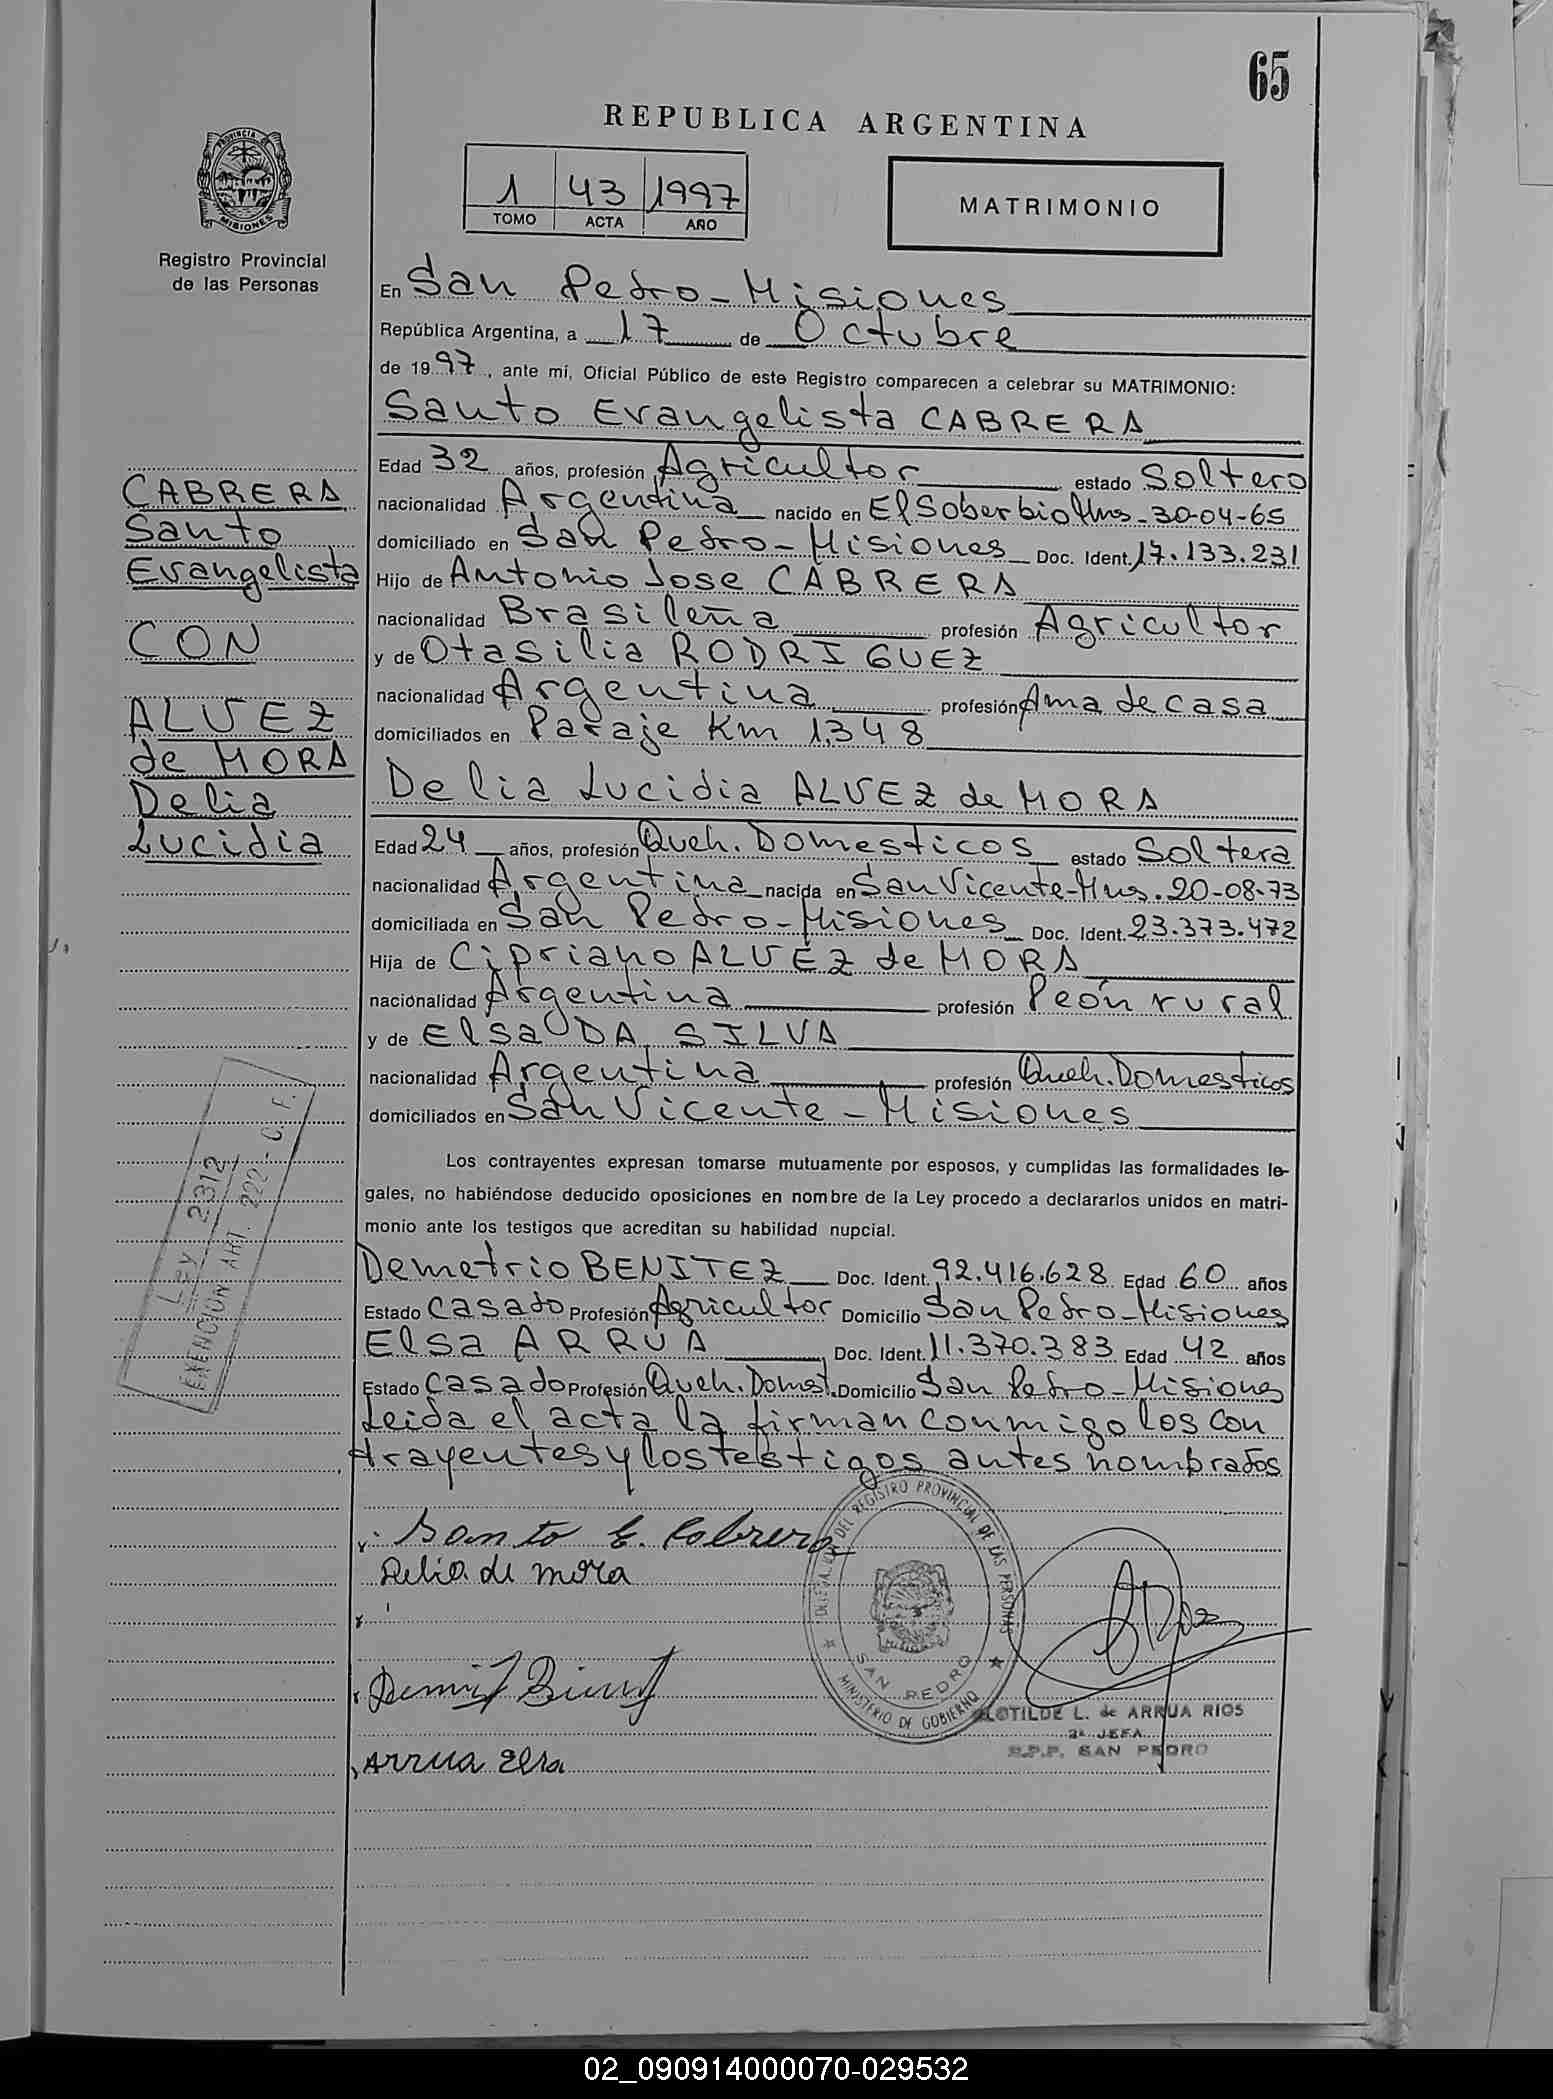 65
REPUBLICA ARGENTINA
PROVINCIA DE
MISIONES
Registro Provincial
de las Personas
1 43 1997
TOMO ACTA AÑO
MATRIMONIO
En San Pedro - Misiones
República Argentina, a 17 de Octubre
de 1997, ante mí, Oficial Público de este Registro comparecen a celebrar su MATRIMONIO:
Santo Evangelista CABRERA
Edad 32 años, profesión Agricultor estado Soltero
nacionalidad Argentina nacido en El Soberbio Mns - 30-04-65
domiciliado en San Pedro - Misiones Doc. Ident. 17.133.231
Hijo de Antonio Jose CABRERA
nacionalidad Brasileña profesión Agricultor
y de Otasilia RODRIGUEZ
nacionalidad Argentina profesión Ama de casa
domiciliados en Paraje Km 1348
CABRERA
Santo
Evangelista
CON
ALVEZ
de MORA
Delia
Lucidia
Delia Lucidia ALVEZ de MORA
Edad 24 años, profesión Queh. Domesticos estado Soltera
nacionalidad Argentina nacida en San Vicente - Mns. 20-08-73
domiciliada en San Pedro - Misiones Doc. Ident. 23.373.472
Hija de Cipriano ALVEZ de MORA
nacionalidad Argentina profesión Peón rural
y de Elsa DA SILVA
nacionalidad Argentina profesión Queh. Domesticos
domiciliados en San Vicente - Misiones
Ley 2312
EXENCION ART. 222 - C. F.
Los contrayentes expresan tomarse mutuamente por esposos, y cumplidas las formalidades le-
gales, no habiéndose deducido oposiciones en nombre de la Ley procedo a declararlos unidos en matri-
monio ante los testigos que acreditan su habilidad nupcial.
Demetrio BENITEZ Doc. Ident. 92.416.628 Edad 60 años
Estado Casado Profesión Agricultor Domicilio San Pedro - Misiones
Elsa ARRUA Doc. Ident. 11.370.383 Edad 42 años
Estado Casado Profesión Queh. Domest. Domicilio San Pedro - Misiones
Leida el acta la firman conmigo los con
trayentes y los testigos antes nombrados
Santo E. Cabrera
Delia de mora
DELEGACION DEL REGISTRO PROVINCIAL DE LAS PERSONAS
SAN PEDRO
MINISTERIO DE GOBIERNO
CLOTILDE L. de ARRUA RIOS
2ª JEFA
R.P.P. SAN PEDRO
Arrua Elsa
02_090914000070-029532